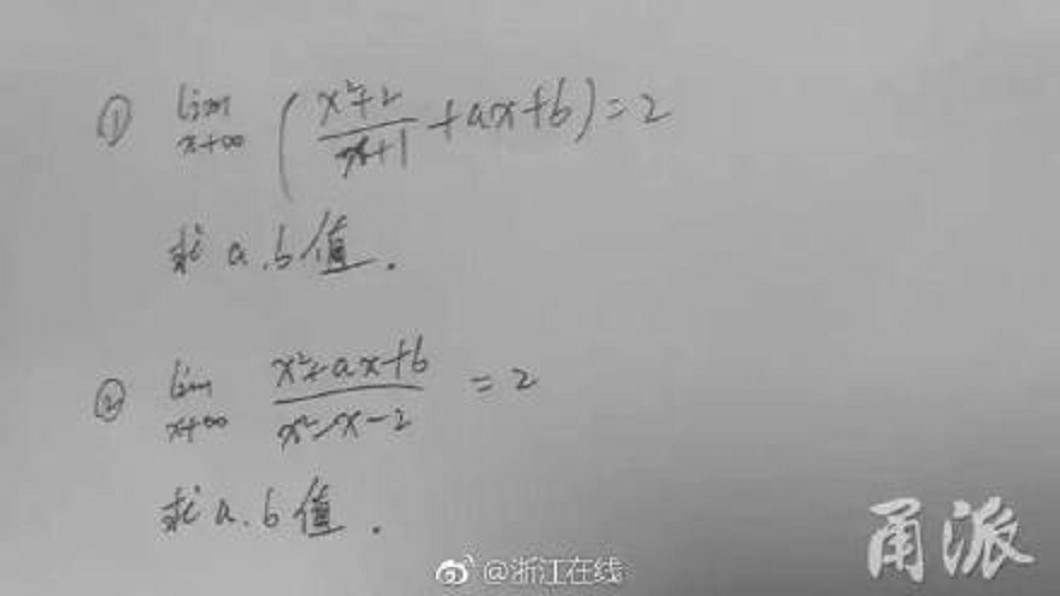 ① lim x→∞ ( x²+2 / x+1 + ax+b ) = 2
求 a.b 值.
② lim x→∞ x²+ax+b / x²-x-2 = 2
求 a.b 值.
甬派
@浙江在线